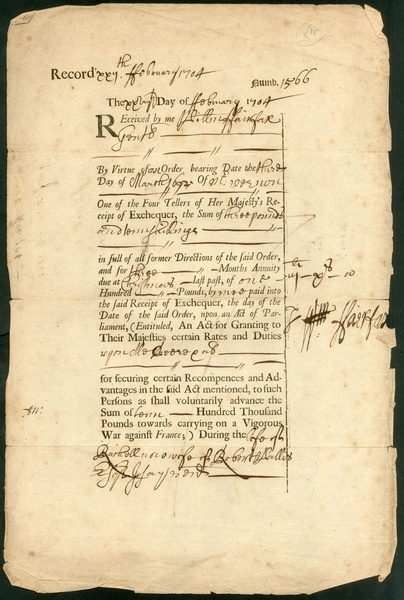 Record xxi th February 1704
Numb. 1566
The Day of February 1704
REceived by me Fairfax
Gent
By Virtue of an Order, bearing Date the third
Day of March Of Mr.
One of the Four Tellers of Her Majesty's Re-
ceipt of Exchequer, the Sum of three pounds
and tenn shillings
in full of all former Directions of the said Order,
and for three —Months Annuity
due at Christmas —last past, of one
Hundred —Pounds, by mee paid into
the said Receipt of Exchequer, the day of the
Date of the said Order, upon an Act of Par-
liament, (Entituled, An Act for Granting to
Their Majesties certain Rates and Duties
upon
for securing certain Recompences and Ad-
vantages in the said Act mentioned, to such
Persons as shall voluntarily advance the
Sum of tenn — Hundred Thousand
Pounds towards carrying on a Vigorous
War against France;) During the life of
Rachell now wife of Robert
Esqr
Fairfax